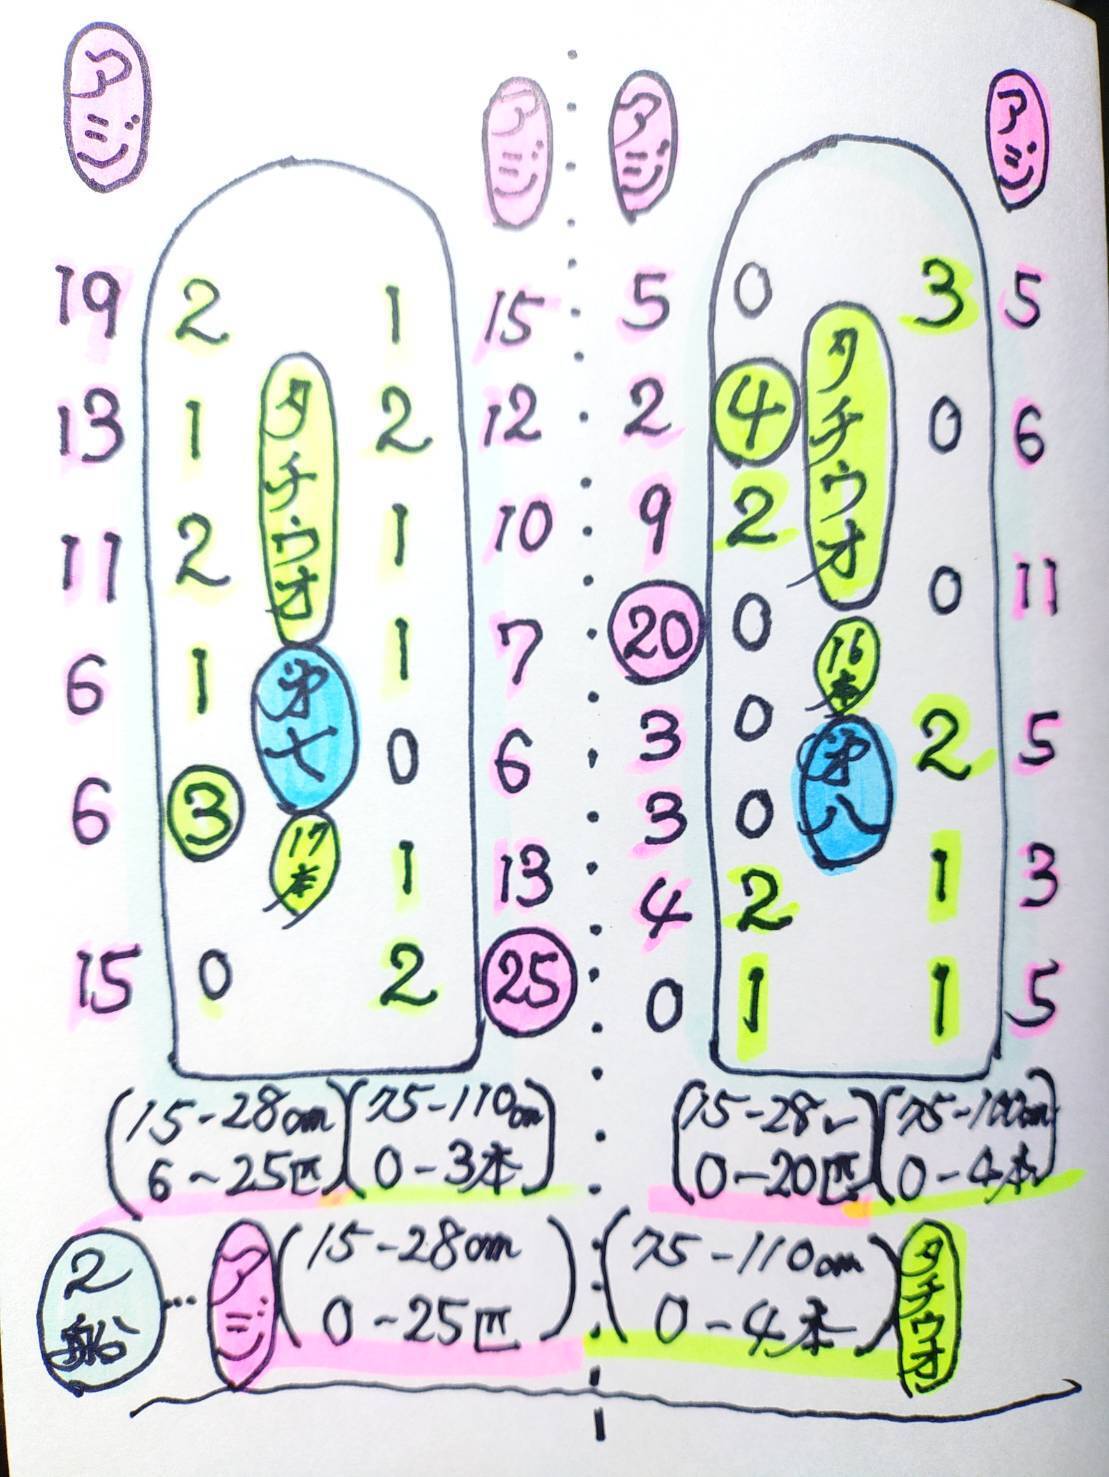 アジ アジ アジ アジ
19 2 1 15 5 0 3 5
タチウオ タチウオ
13 1 2 12 2 4 0 6
11 2 1 10 9 2 0 11
6 1 1 7 20 0
16本
第七 第八
6 3 0 6 3 0 2 5
17本
1 13 3 0
4 2 1 3
15 0 2 25 0 1 1 5
(15-28cm (75-110cm) (15-28 (75-100cm)
6~25匹) 0-3本) 0-20匹) 0-4本)
2船…アジ (15-28cm) (75-110cm) タチウオ
0~25匹 0-4本